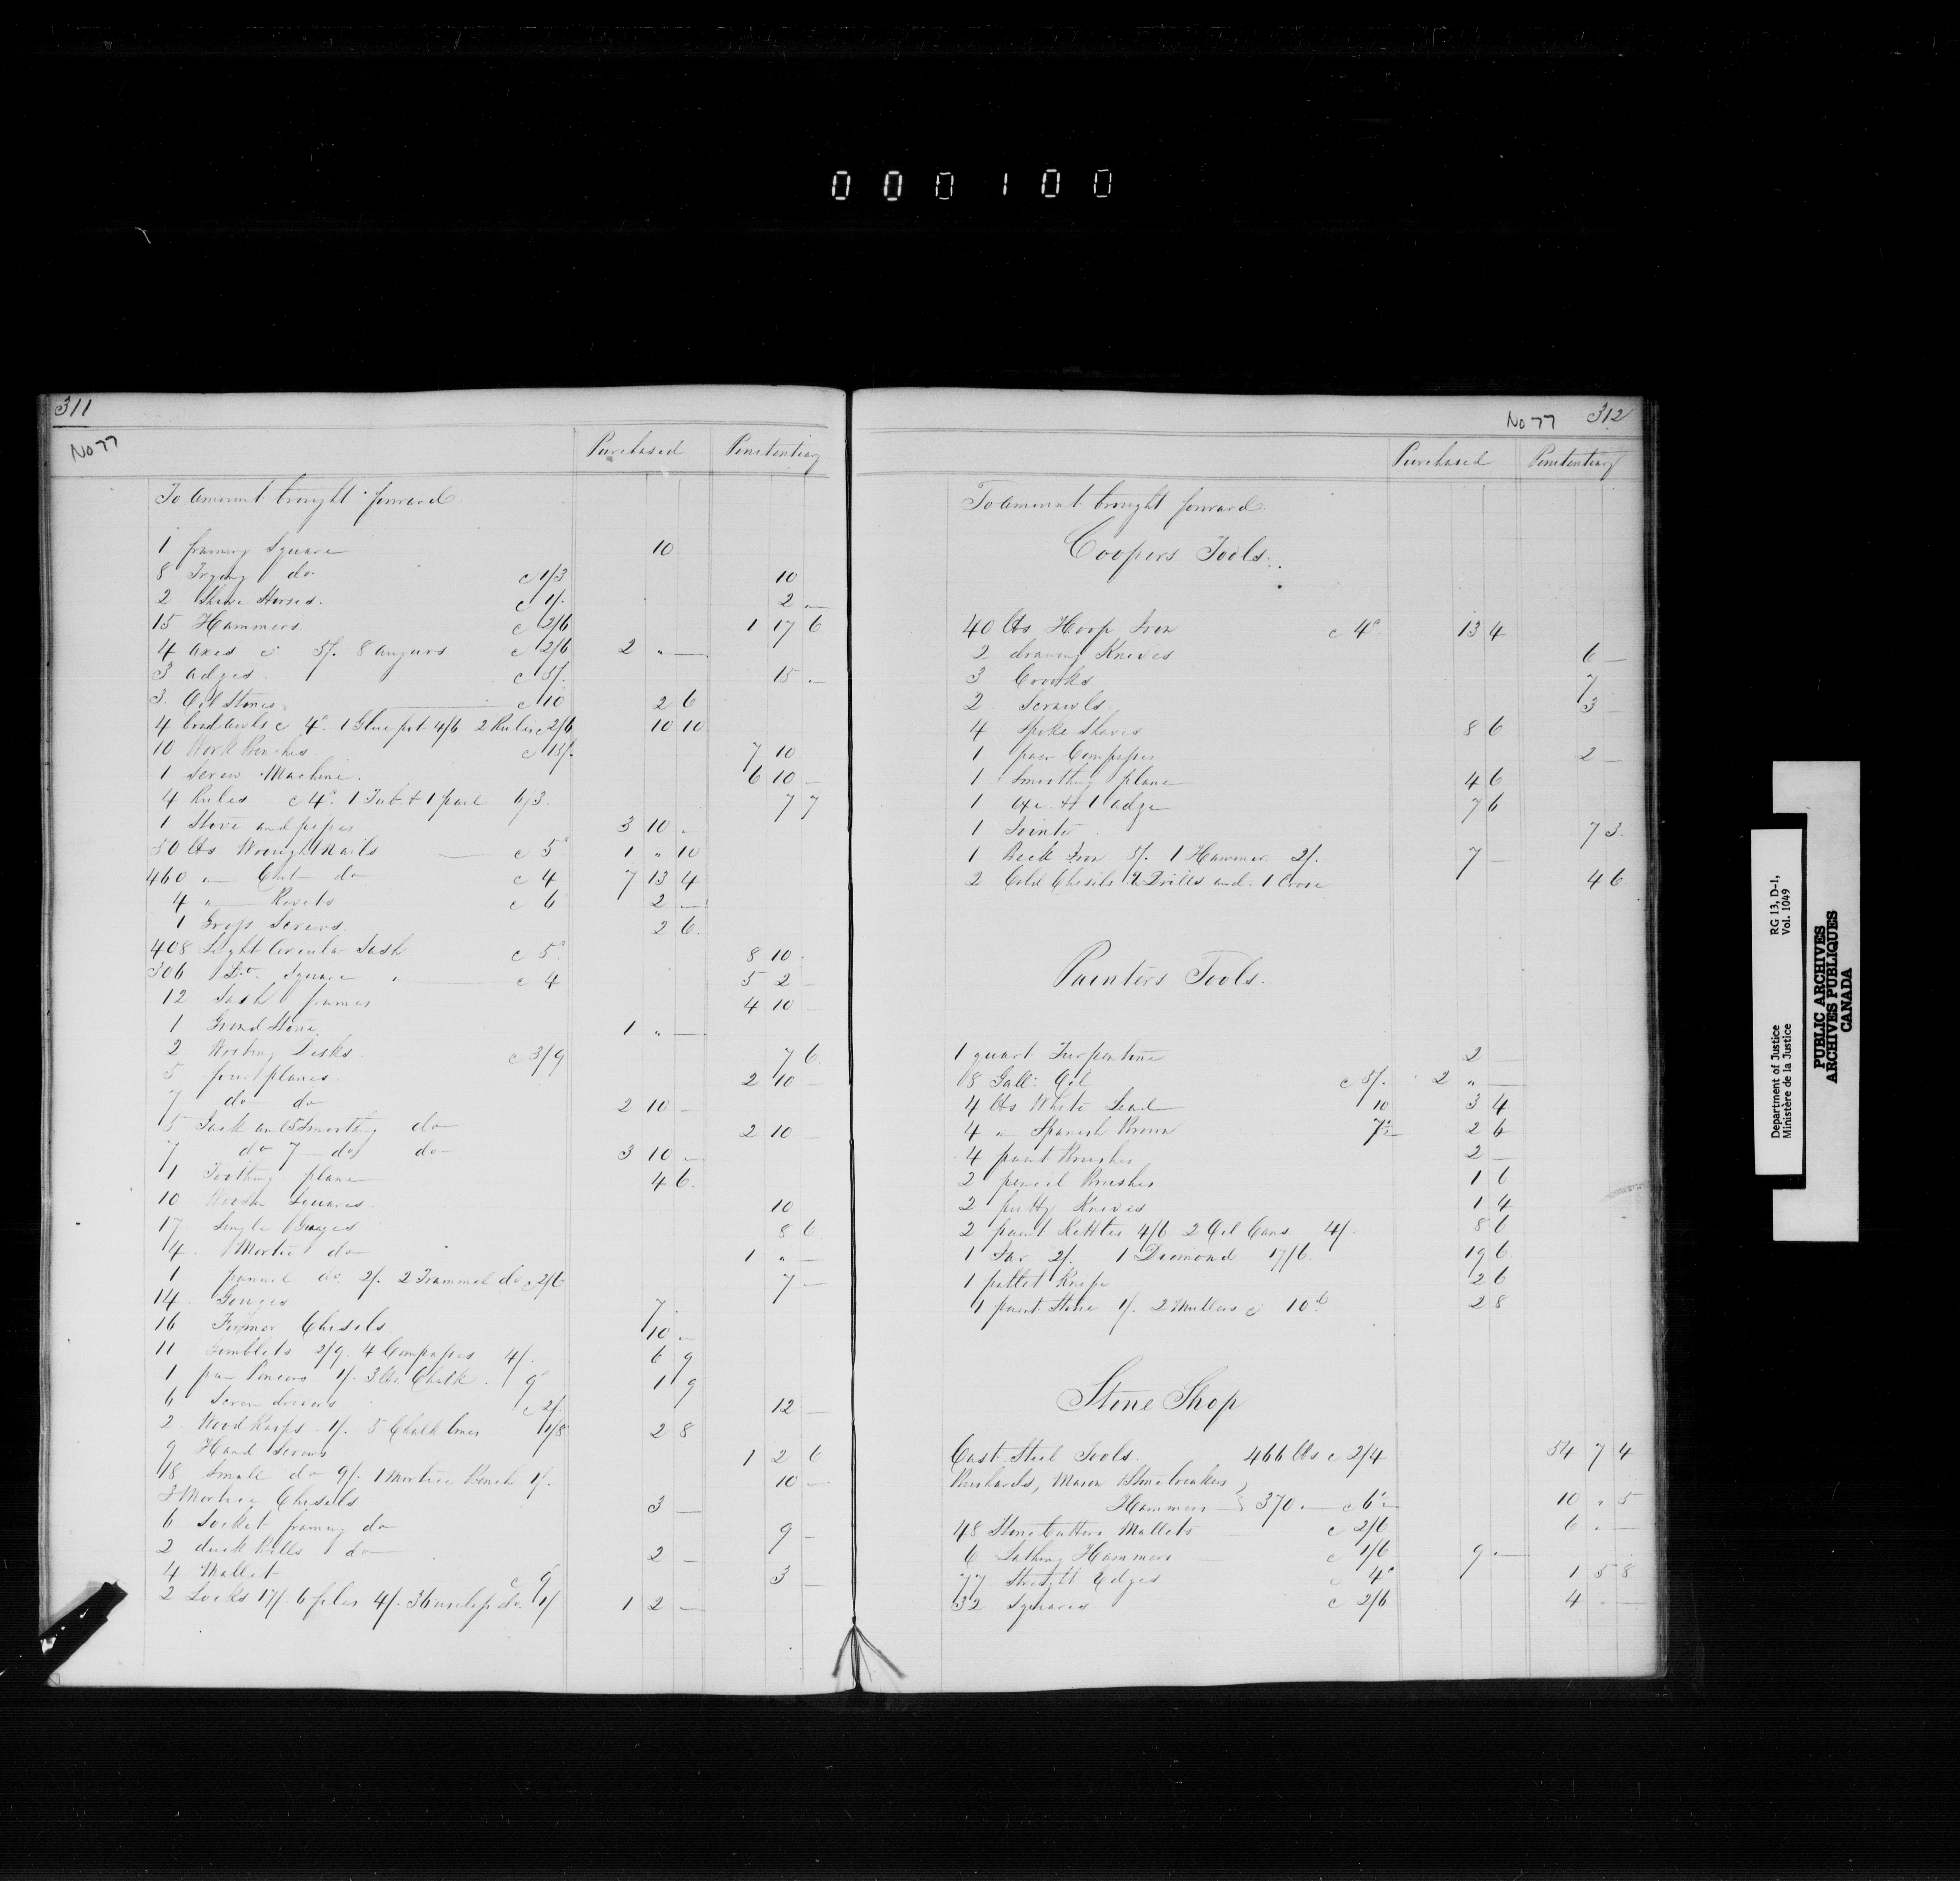 000100
311
No 77
Purchased Penitentiary
To amount brought forward
1 framing Square 10
8 Trying do c 1/3 10
2 Shave Horses. c 1/. 2 —
15 Hammers c 2/6 1 17 6
4 axes c 5/. 8 augurs c 2/6 2 " —
3 adges. c 5/. 15 —
3 Oil Stones c 10 2 6
4 brad awls c 4d. 1 Glue pot 4/6 2 Rules c 2/6 10 10
10 Work Benches c 15/. 7 10
1 Screw Machine. 6 10 —
4 Rules c 4d. 1 Tub & 1 pail 6/3. 7 7
1 Stove and pipes 3 10 —
50 lbs Wrought Nails — c 5d 1 " 10
460 " Cut do c 4 7 13 4
4 " Rivets c 6 2 —
1 Gross Screws. 2 6.
408 Light Circular Sash c 5d. 8 10
306 Do. Square " — c 4 5 2 —
12 Sash frames 4 10 —
1 Grind Stone. 1 " —
2 Writing Desks c 3/9 7 6
5 fore planes. 2 10 —
7 do do 2 10 —
5 Jack and 5 Smoothing do 2 10 —
7 do 7 do do 3 10 —
1 Toothing plane 4 6.
10 Wooden Squares. 10
17 Single Gauges 8 6
4 Mortice do 1 " —
1 pannel do. 2/. 2 Trammel do c 2/6 7 —
14 Gouges 7.
16 Firmor Chisels. 10 —
11 Gimblets 2/9. 4 Compasses 4/. 6 9
1 pair Pincers 1/. 3 lbs Chalk. 9d 1 9
6 Screw drivers c 2/. 12 —
2 Wood Rasps 1/. 5 Chalk lines 1/8 2 8
9 Hand Screws 1 2 6
18 Small do 9/. 1 Mortice Bench 1/. 10 —
3 Mortice Chisels 3 —
6 Socket framing do 9 —
2 duck bills do 2 —
4 Mallet c 9d 3 —
2 Locks 17/. 6 files 4/. 1/ 1 2 —
No 77 312
Purchased Penitentiary
To amount brought forward.
Coopers Tools.
40 lbs Hoop Iron c 4d. 13 4
2 drawing Knives 6 —
3 Crooks 7
2 Scrawls. 3 —
4 Spoke Shaves 8 6
1 pair Compasses 2 —
1 Smoothing plane 4 6
1 axe & 1 adge 7 6
1 Jointer 7 3.
1 Beck Iron 5/. 1 Hammer 2/. 7 —
2 Cold Chisels 2 Drills and 1 Croze 4 6
Painters Tools.
1 quart Turpentine 2 —
8 Galls. Oil c 5/. 2 " —
4 lbs White Lead 10 3 4
4 " Spanish Brown 7½ 2 6
4 paint Brushes 2 —
2 pencil Brushes 1 6
2 putty Knives 1 4
2 paint Kettles 4/6 2 Oil Cans 4/. 8 6
1 Jar 2/. 1 Diamond 17/6. 19 6
1 pallet Knife 2 6
1 paint Stone 1/. 2 Mullers c 10d. 2 8
Stone Shop
Cast Steel Tools. 466 lbs c 2/4 54 7 4
Bushards, Mason & Stonebreakers
Hammers — 370 " — c 6½ 10 " 5
48 Stone Cutters Mallets c 2/6 6 " —
6 Lathing Hammers c 1/6 9 " —
77 Straight Edges c 4d 1 5 8
32 Squares c 2/6 4 " —
Department of Justice RG 13, D-1,
Ministère de la Justice Vol. 1049
PUBLIC ARCHIVES
ARCHIVES PUBLIQUES
CANADA